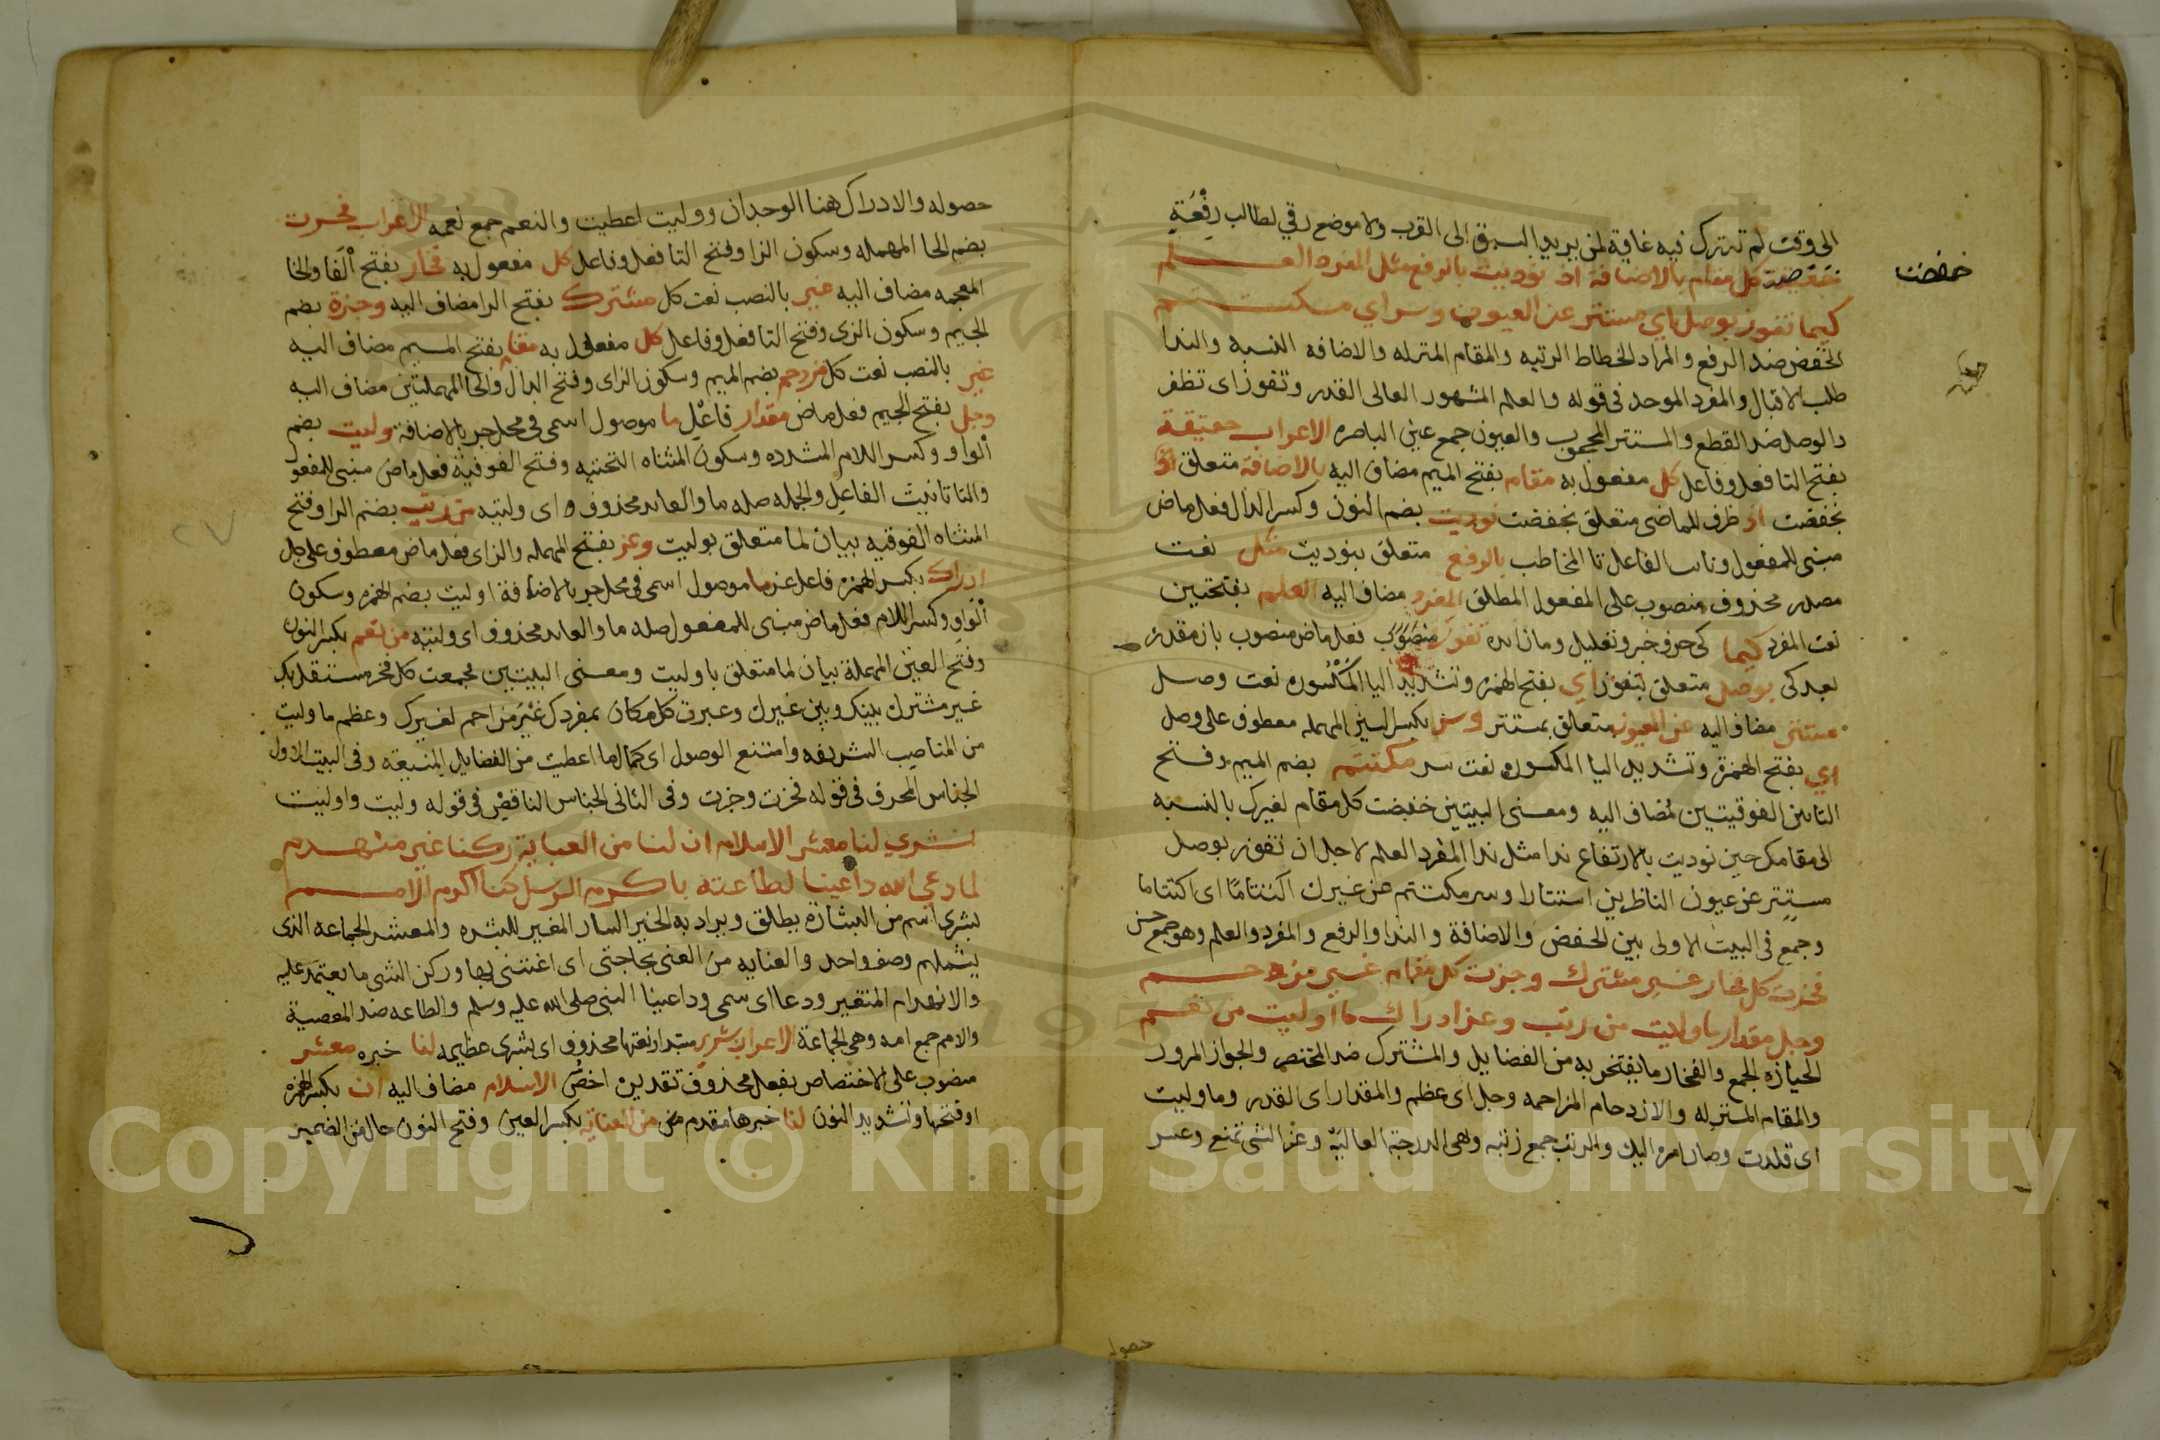 الى وقت لم تترك فيه غاية لمن يريد السبق الى القرب ولا موضع رقي لطالب رفعة
خفضت كل مقام بالاضافة اذ نوديت بالرفع مثل المفرد العلم
خفضت
كيما تفوز بوصل اي مستتر عن العيون وسر اي مكتتم
الخفض ضد الرفع والمراد انخطاط الرتبه والمقام المنزله والاضافه النسبه والندا
طلب الاقبال والمفرد الموحد في قوله والعلم المشهور العالى القدر وتفوز اى تظفر
والوصل ضد القطع والمستتر المحجوب والعيون جمع عين الباصره الاعراب خفضت
بفتح التا فعل وفاعل كل مفعول به مقام بفتح الميم مضاف اليه بالاضافة متعلق
بخفضت اذ ظرف للماضى متعلق بخفضت نوديت بضم النون وكسر الدال فعل ماض
مبنى للمفعول ونائب الفاعل تا المخاطب بالرفع متعلق بنوديت مثل نعت
مصدر محذوف منصوب على المفعول المطلق المفرد مضاف اليه العلم بفتحتين
نعت المفرد كيما كى حرف جر وتعليل وما زايده تفوز منصوب فعل ماض منصوب بان مقدره
بعد كى بوصل متعلق بتفوز اي بفتح الهمزه وتشديد اليا المكسوره نعت وصل
مستتر مضاف اليه عن العيون متعلق بمستتر وسر بكسر السين المهمله معطوف على وصل
اي بفتح الهمزة وتشديد اليا المكسوره نعت سر مكتتم بضم الميم وفتح
التاىن الفوقيتين مضاف اليه ومعنى البيتين خفضت كل مقام لغيرك بالنسبه
الى مقامك حين نوديت بالارتفاع ندا مثل ندا المفرد العلم لاجل ان تفوز بوصل
مستتر عن عيون الناظرين استتارا وسر مكتتم عن غيرك اكتتامًا اى اكتتاما
وجمع في البيت الاولى بين الخفض والاضافة والندا والرفع والمفرد والعلم وهو جمع حسن
فحزت كل فخار غير مشترك وجزت كل مقام غير مزدحم
وجل مقدار ما وليت من رتب وعز ادراك ما اوليت من نعم
الحيازه الجمع والفخار ما يفتخر به من الفضايل والمشترك ضد المختص والجواز المرور
والمقام المنزله والازدحام المزاحمه وجل اى عظم والمقدار اى القدر وما وليت
اى قلدت وصار امره اليك والرتب جمع رتبه وهى الدرجة العاليه وعز الشى تمنع وعسر
حصوله
حصوله والادراك هنا الوجدان ووليت اعطيت والنعم جمع نعمه الاعراب فحزت
بضم الحا المهمله وسكون الزا وفتح التا فعل وفاعل كل مفعول به فخار بفتح الفا والخا
المعجمه مضاف اليه غير بالنصب نعت كل مشترك بفتح الرا مضاف اليه وجزة بضم
الجيم وسكون الزى وفتح التا فعل وفاعل كل مفعول به مقام بفتح الميم مضاف اليه
غير بالنصب نعت كل مزدحم بضم الميم وسكون الزاى وفتح الدال والحا المهملتين مضاف اليه
وجل بفتح الجيم فعل ماض مقدار فاعل ما موصول اسمى في محل جر بالاضافة وليت بضم
الواو وكسر اللام المشدده وسكون المثناه التحتيه وفتح الفوقية فعل ماض مبنى للمفعو
والتا تانيث الفاعل والجمله صله ما والعايد محذوف اى وليته من رتب بضم الرا وفتح
المثناه الفوقيه بيان لما متعلق بوليت وعز بفتح المهمله والزاى فعل ماض معطوف على جل
ادراك بكسر الهمزه فاعل عز ما موصول اسمى في محل جر بالاضافة اوليت بضم الهمزه وسكون
الواو وكسر اللام فعل ماض مبنى للمفعول صله ما والعايد محذوف اى اوليته من نعم بكسر النون
وفتح العين المهملة بيان لما متعلق باوليت ومعنى البيتين فجمعت كل فخر مستقل بك
غير مشترك بينك وبين غيرك وعبرت كل مكان بمفردك غير مزاحم لغيرك وعظم ما وليت
من المناصب الشريفه وامتنع الوصول اى كمال ما اعطيت من الفضايل المنيعه وفى البيت الاول
الجناس المحرف في قوله فحزت وجزت وفى الثانى الجناس الناقص في قوله وليت واوليت
بشري لنا معشر الاسلام ان لنا من العناية ركنا غير منهدم
لما دعى الله داعينا لطاعته باكرم الرسل كنا اكرم الامم
بشرى اسم من البشارة يطلق ويراد به الخبر السار المغير للبشره والمعشر الجماعه الذى
يشملهم وصف واحد والعنايه من العنى بحاجتى اى اغتنى بها وركن الشى ما يعتمد عليه
والانهدام المتغير ودعا اى سمى وداعينا النبى صلى الله عليه وسلم والطاعه ضد المعصية
والامم جمع امه وهى الجماعة الاعراب بشرى مبتدا نعتها محذوف اى بشرى عظيمه لنا خبره معشر
منصوب على الاختصاص بفعل محذوف تقديره اخص الاسلام مضاف اليه ان بكسر الهمزه
او فتحها وتشديد النون لنا خبرها مقدم من العناية بكسر العين وفتح النون حال من الضمير
Copyright © King Saud University